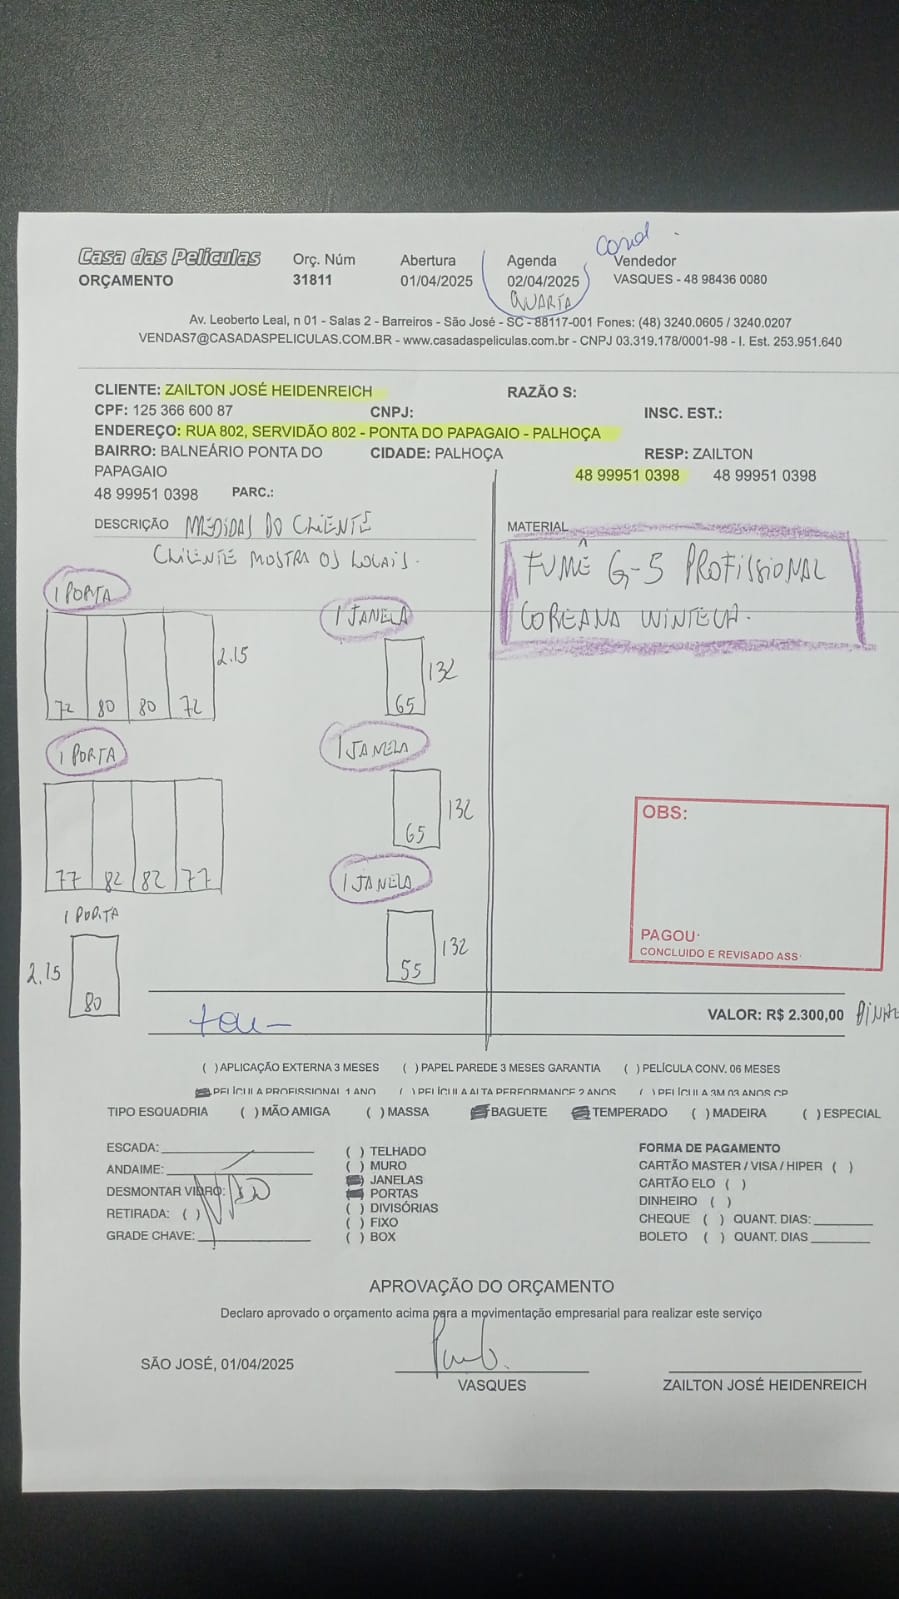 Casa das Películas
ORÇAMENTO
Orç. Núm
31811
Abertura
01/04/2025
Agenda
02/04/2025
QUARTA
Vendedor
VASQUES - 48 98436 0080
Av. Leoberto Leal, n 01 - Salas 2 - Barreiros - São José - SC - 88117-001 Fones: (48) 3240.0605 / 3240.0207
VENDAS7@CASADASPELICULAS.COM.BR - www.casadaspeliculas.com.br - CNPJ 03.319.178/0001-98 - I. Est. 253.951.640
CLIENTE: ZAILTON JOSÉ HEIDENREICH RAZÃO S:
CPF: 125 366 600 87 CNPJ: INSC. EST.:
ENDEREÇO: RUA 802, SERVIDÃO 802 - PONTA DO PAPAGAIO - PALHOÇA
BAIRRO: BALNEÁRIO PONTA DO PAPAGAIO CIDADE: PALHOÇA RESP: ZAILTON
48 99951 0398 48 99951 0398
48 99951 0398 PARC.:
DESCRIÇÃO MEDIDAS DO CLIENTE
CLIENTE MOSTRA OS LOCAIS.
MATERIAL
FUMÊ G-5 PROFISSIONAL
COREANA WINTECH.
1 PORTA
72 80 80 72 2.15
1 JANELA
65 132
1 PORTA
77 82 82 77
1 JANELA
65 132
1 PORTA
2.15 80
1 JANELA
55 132
OBS:
PAGOU:
CONCLUIDO E REVISADO ASS:
VALOR: R$ 2.300,00
( ) APLICAÇÃO EXTERNA 3 MESES ( ) PAPEL PAREDE 3 MESES GARANTIA ( ) PELÍCULA CONV. 06 MESES
PELÍCULA PROFISSIONAL 1 ANO ( ) PELÍCULA ALTA PERFORMANCE 2 ANOS ( ) PELÍCULA 3M 03 ANOS CP
TIPO ESQUADRIA ( ) MÃO AMIGA ( ) MASSA BAGUETE TEMPERADO ( ) MADEIRA ( ) ESPECIAL
ESCADA:
ANDAIME:
DESMONTAR VIDRO: NÃO
RETIRADA: ( )
GRADE CHAVE:
( ) TELHADO
( ) MURO
JANELAS
PORTAS
( ) DIVISÓRIAS
( ) FIXO
( ) BOX
FORMA DE PAGAMENTO
CARTÃO MASTER / VISA / HIPER ( )
CARTÃO ELO ( )
DINHEIRO ( )
CHEQUE ( ) QUANT. DIAS:
BOLETO ( ) QUANT. DIAS
APROVAÇÃO DO ORÇAMENTO
Declaro aprovado o orçamento acima para a movimentação empresarial para realizar este serviço
SÃO JOSÉ, 01/04/2025
VASQUES
ZAILTON JOSÉ HEIDENREICH